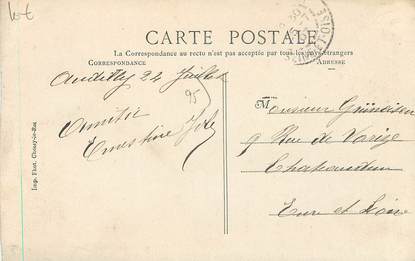 lot
CARTE POSTALE
La Correspondance au recto n'est pas acceptée par tous les pays étrangers
CORRESPONDANCE
ADRESSE
SEINE-ET-OISE
Andilly 24 Juillet
95
Amitié
Ernestine
Monsieur
9 Rue de Varize
Chateaudun
Eure et Loire
Imp. Phot. Choisy-le-Roi